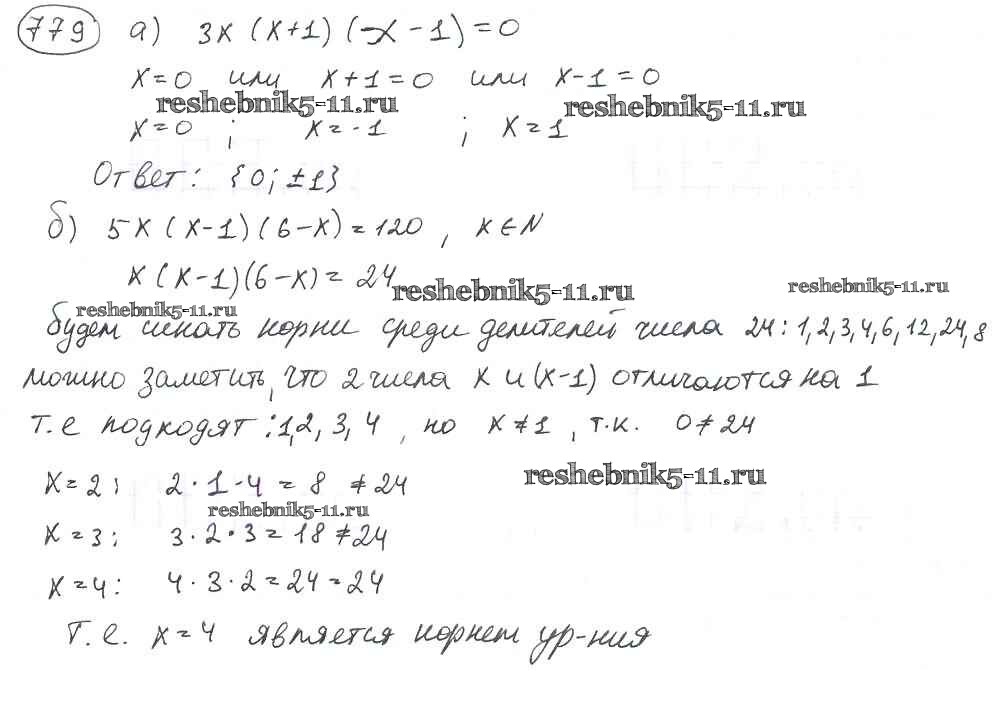 779 а) 3x (x+1) (x-1)=0
x=0 или x+1=0 или x-1=0
reshebnik5-11.ru reshebnik5-11.ru
x=0 ; x=-1 ; x=1
Ответ: {0; ±1}
б) 5x (x-1)(6-x)=120, x∈N
x(x-1)(6-x)=24
reshebnik5-11.ru reshebnik5-11.ru
reshebnik5-11.ru
будем искать корни среди делителей числа 24: 1,2,3,4,6,12,24,8
можно заметить, что 2 числа x и (x-1) отличаются на 1
т.е подходят: 1,2,3,4, но x≠1, т.к. 0≠24
x=2: 2·1·4=8≠24
reshebnik5-11.ru
reshebnik5-11.ru
x=3: 3·2·3=18≠24
x=4: 4·3·2=24=24
Т.е. x=4 является корнем ур-ния